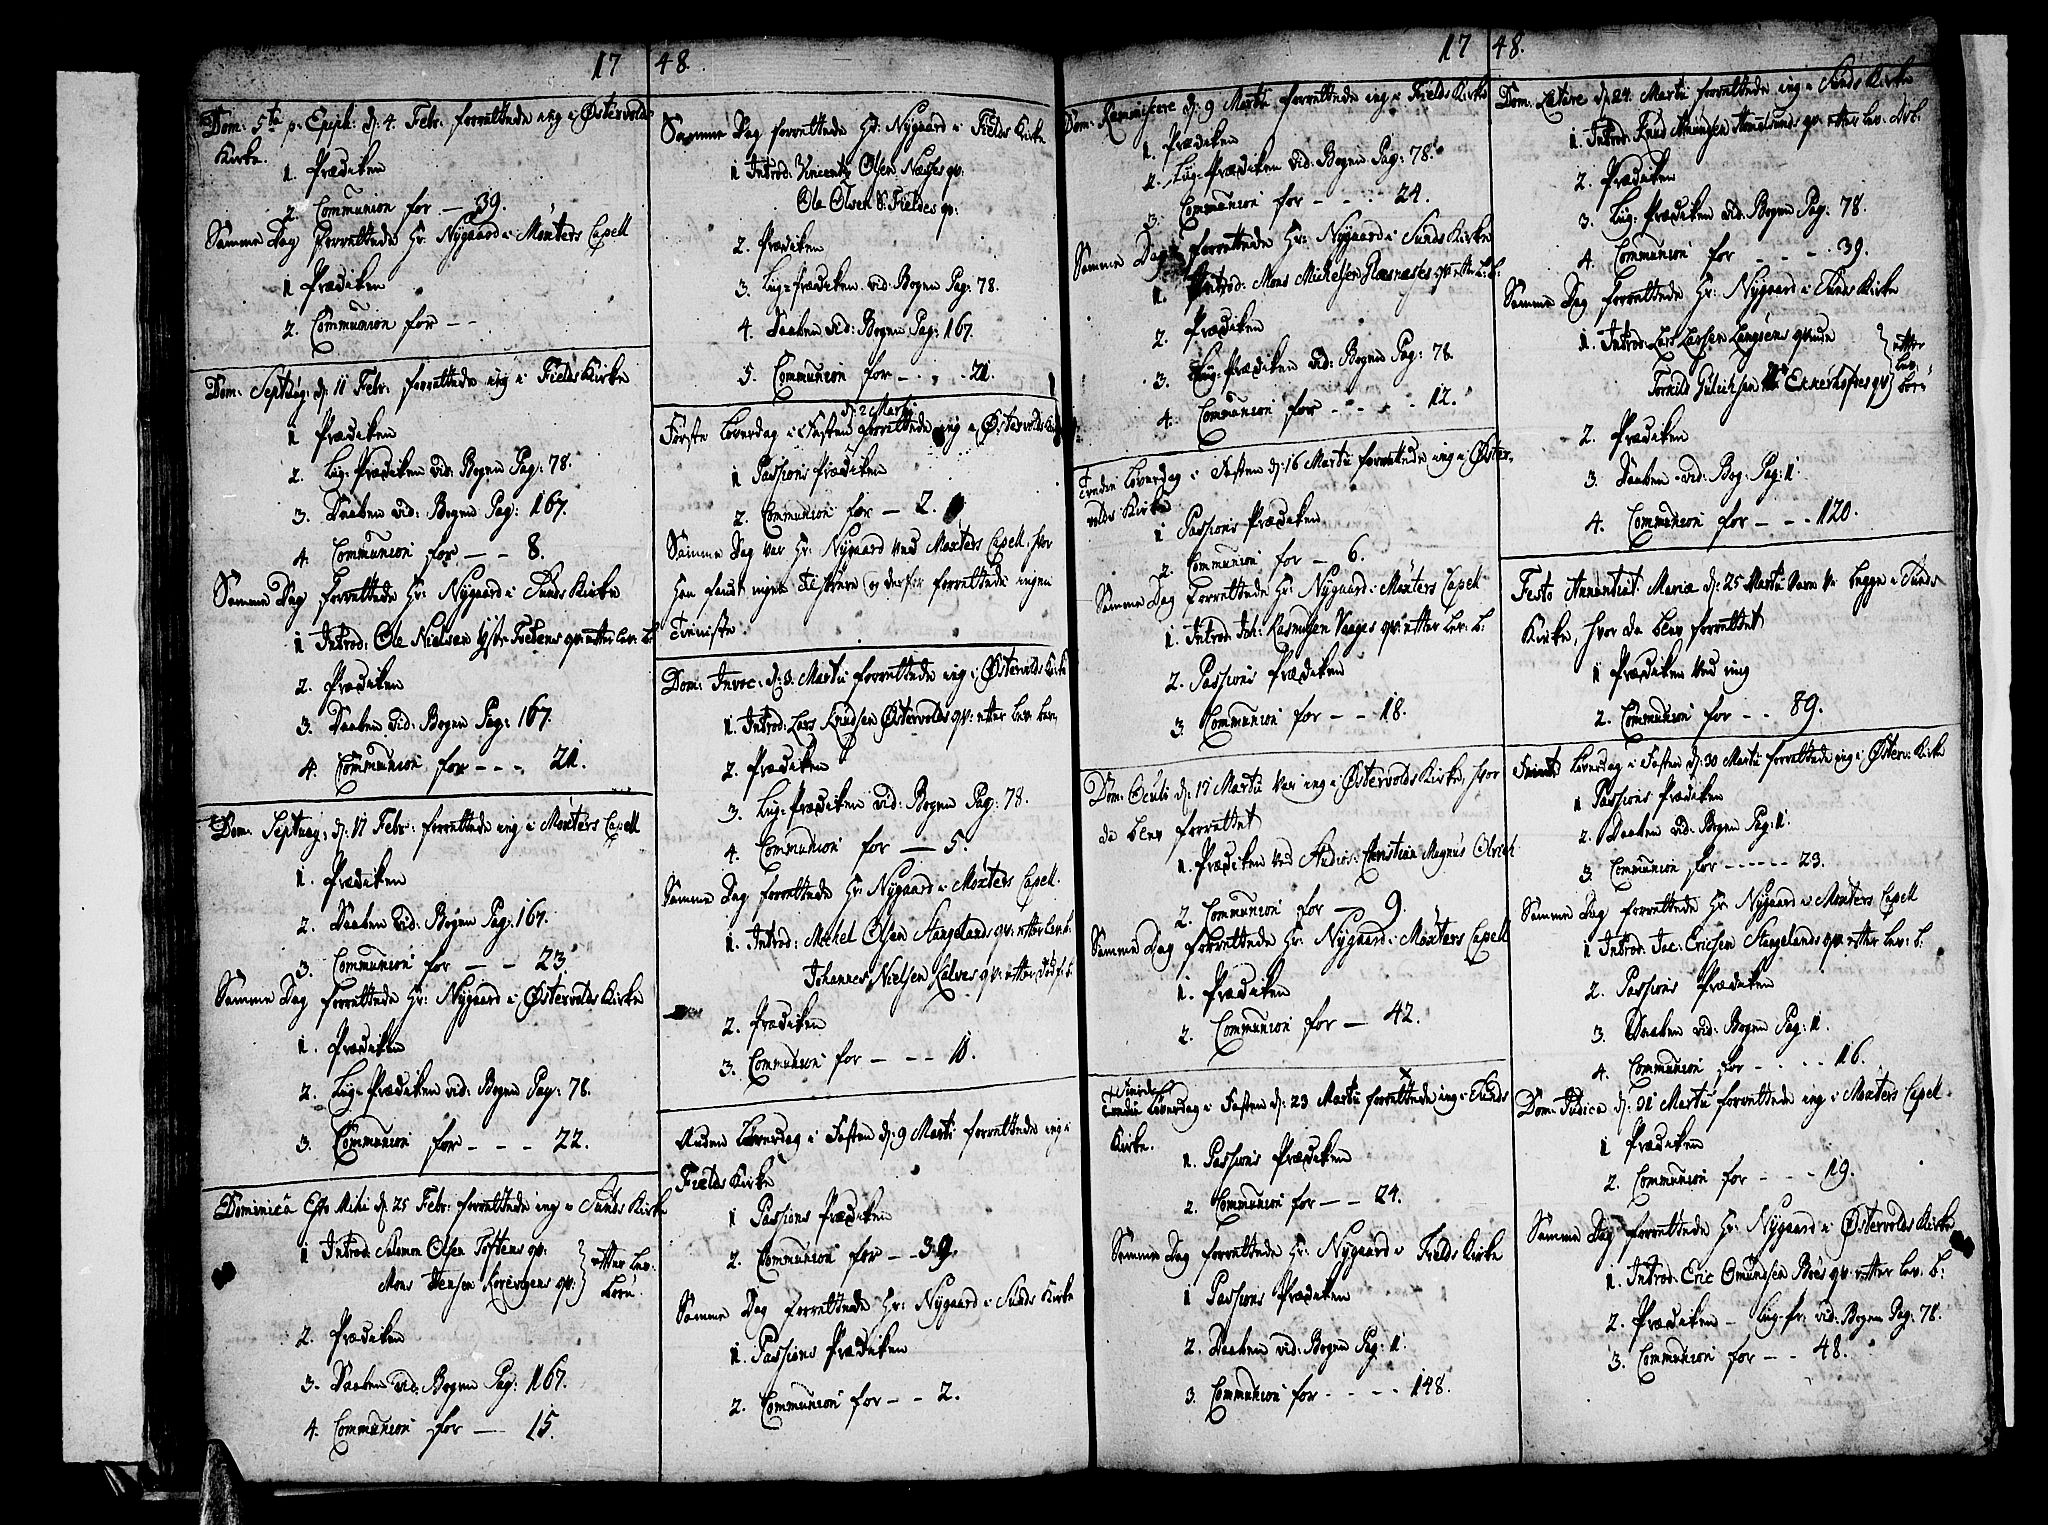 17 48
Dom: 5ta p. Epiph: d: 4. Febr. forrettede ieg i Østervolds
Kirke.
1. Prædiken
2. Communion for — 39.
Samme Dag forrettede Hr: Nygaard i Møxters Capell
1 Prædiken
2. Communion for — —
Dom: d: 11 Febr. forrettede ieg i Fields Kirke
1 Prædiken
2. Lüg-Prædiken vid: Bogen Pag: 78.
3. Daaben vid: Bogen Pag: 167.
4. Communion for — — 8.
Samme Dag forrettede Hr: Nygaard i Sunds Kirke
1 Introd: Ole Nielsen qv: etter lev: b.
2. Prædiken
3. Daaben vid: Bogen Pag: 167.
4. Communion for - - - 21.
Dom. Septuag: d: 11 Febr: forrettede ieg i Møxters Capell
1. Prædiken
2. Daaben vid: Bogen Pag: 167.
3. Communion for — — 23
Samme Dag forrettede Hr: Nygaard i Østervolds Kirke
1. Prædiken
2. Lüg-Prædiken vid: Bogen Pag: 78.
3. Communion for - - - 22.
Dominica Esto Mihi d. 25 Febr: forrettede ieg i Sunds Kirke
1 Introd: Salomon Olsen Toftens qv:
Mons Jensen qv: } etter lev: børn.
2. Prædiken
3. Daaben vid: Bogen Pag: 167.
4. Communion for — 15.
Samme Dag forrettede Hr: Nygaard i Fields Kirke
1 Introd: Vincentz Olsen qv:
Ole Olsen S. Fieldes qv:
2. Prædiken
3. Lüg-prædiken vid: Bogen Pag: 78.
4. Daaben vid: Bogen Pag: 167.
5. Communion for - - - 21.
d: 2 Martii
Første Løverdag i Fasten forrettede ieg i Østervolds Kirke
1 Passions Prædiken
2. Communion for — 2.
Samme Dag var Hr: Nygaard ved Møxters Capell, hvor
han fandt ingen Tilhørere og derfor forrettede ingen
Tieniste.
Dom: Invoc: d: 3. Martii forrettede ieg i Østervolds Kirke
1. Introd: Lars Knudsen Østervolds qv: etter lev: børn
2. Prædiken
3. Lüg-Prædiken vid: Bogen Pag: 78.
4. Communion for — 5.
Samme Dag forrettede Hr: Nygaard i Møxters Capell.
1. Introd: Michel Olsen Stangelands qv: etter lev: b.
Johannes Nielsen Kalves qv: etter dødf: b.
2. Prædiken
3. Communion for — — — 11.
Anden Løverdag i Fasten d: 9 Marti forrettede ieg i
Fields Kirke
1 Passions Prædiken
2. Communion for — 39.
Samme Dag forrettede Hr: Nygaard i Sunds Kirke
1. Passions Prædiken
2. Communion for — — 2.
17 48.
Dom: Reminiscere d: 9 Martii forrettede ieg i Fields Kirke
1. Prædiken
2. Lüg-Prædiken vid: Bogen Pag: 78.
3. Communion for - - - - 24.
Samme Dag forrettede Hr: Nygaard i Sunds Kirke
1. Introd: Mons Michelsen qv: etter l: b:
2. Prædiken
3. Lüg-Prædiken vid: Bogen Pag: 78.
4. Communion for - - - - - 12.
Tredie Løverdag i Fasten d: 16 Martii forrettede ieg i Øster-
volds Kirke
1 Passions-Prædiken
2. Communion for — 6.
Samme Dag forrettede Hr: Nygaard i Møxters Capell
1. Introd: Joh: Rasmusen Vaages qv: etter lev: b:
2. Passions Prædiken
3 Communion for — — 18.
Dom: Oculi d: 17 Martii var ieg i Østervolds Kirke, hvor
da blev forrettet
1. Prædiken ved Studios: Christian Magnus Olrich
2. Communion for — 9.
Samme Dag forrettede Hr: Nygaard i Møxters Capell
1. Prædiken
2. Communion for — 42.
Fierde
Tredie Løverdag i Fasten d: 23 Martii forrettede ieg i Sunds
Kirke.
1. Passions Prædiken
2. Communion for — — 24.
Samme Dag forrettede Hr: Nygaard i Fields Kirke
1 Passions Prædiken
2. Daaben vid: Bogen Pag: 11.
3. Communion for - - - - 148.
Dom: Lætare d: 24. Martii forrettede ieg i Sunds Kirke
1. Introd: Knud Amundsen qv: etter lev: b.
2. Prædiken
3. Lüg-Prædiken vid: Bogen Pag: 78.
4. Communion for - - - - 39.
Samme Dag forrettede Hr: Nygaard i Sunds Kirke
1. Introd: Lars Larsen qvinde
Torkild qv: } etter lev: børn
2. Prædiken
3. Daaben vid: Bog: Pag: 11
4. Communion for - - - 120.
Festo Annuntiat: Mariæ d: 25 Martii vare vi begge i Sunds
Kirke, hvor da blev forrettet
1 Prædiken ved mig
2. Communion for - - 89.
Løverdag i Fasten d: 30 Martii forrettede ieg i Østerv: Kirke
1 Passions Prædiken
2. Daaben vid: Bogen Pag: 11.
3. Communion for - - - - - - 23.
Samme Dag forrettede Hr: Nygaard i Møxters Capell
1 Introd: Jac: Ericsen Stangelands qv: etter lev: b.
2. Passions Prædiken
3. Daaben vid: Bogen Pag: 11.
4. Communion for - - - - 16.
Dom: Judica d: 31 Martii forrettede ieg i Møxters Capel.
1 Prædiken
2. Communion for - - - - 19.
Samme Dag forrettede Hr: Nygaard i Østervolds Kirke
1. Introd: Eric Omundsen Boes qv: etter lev: b:
2. Prædiken — Lüg-pr: vid: Bogen Pag: 78.
3. Communion for — — 48.